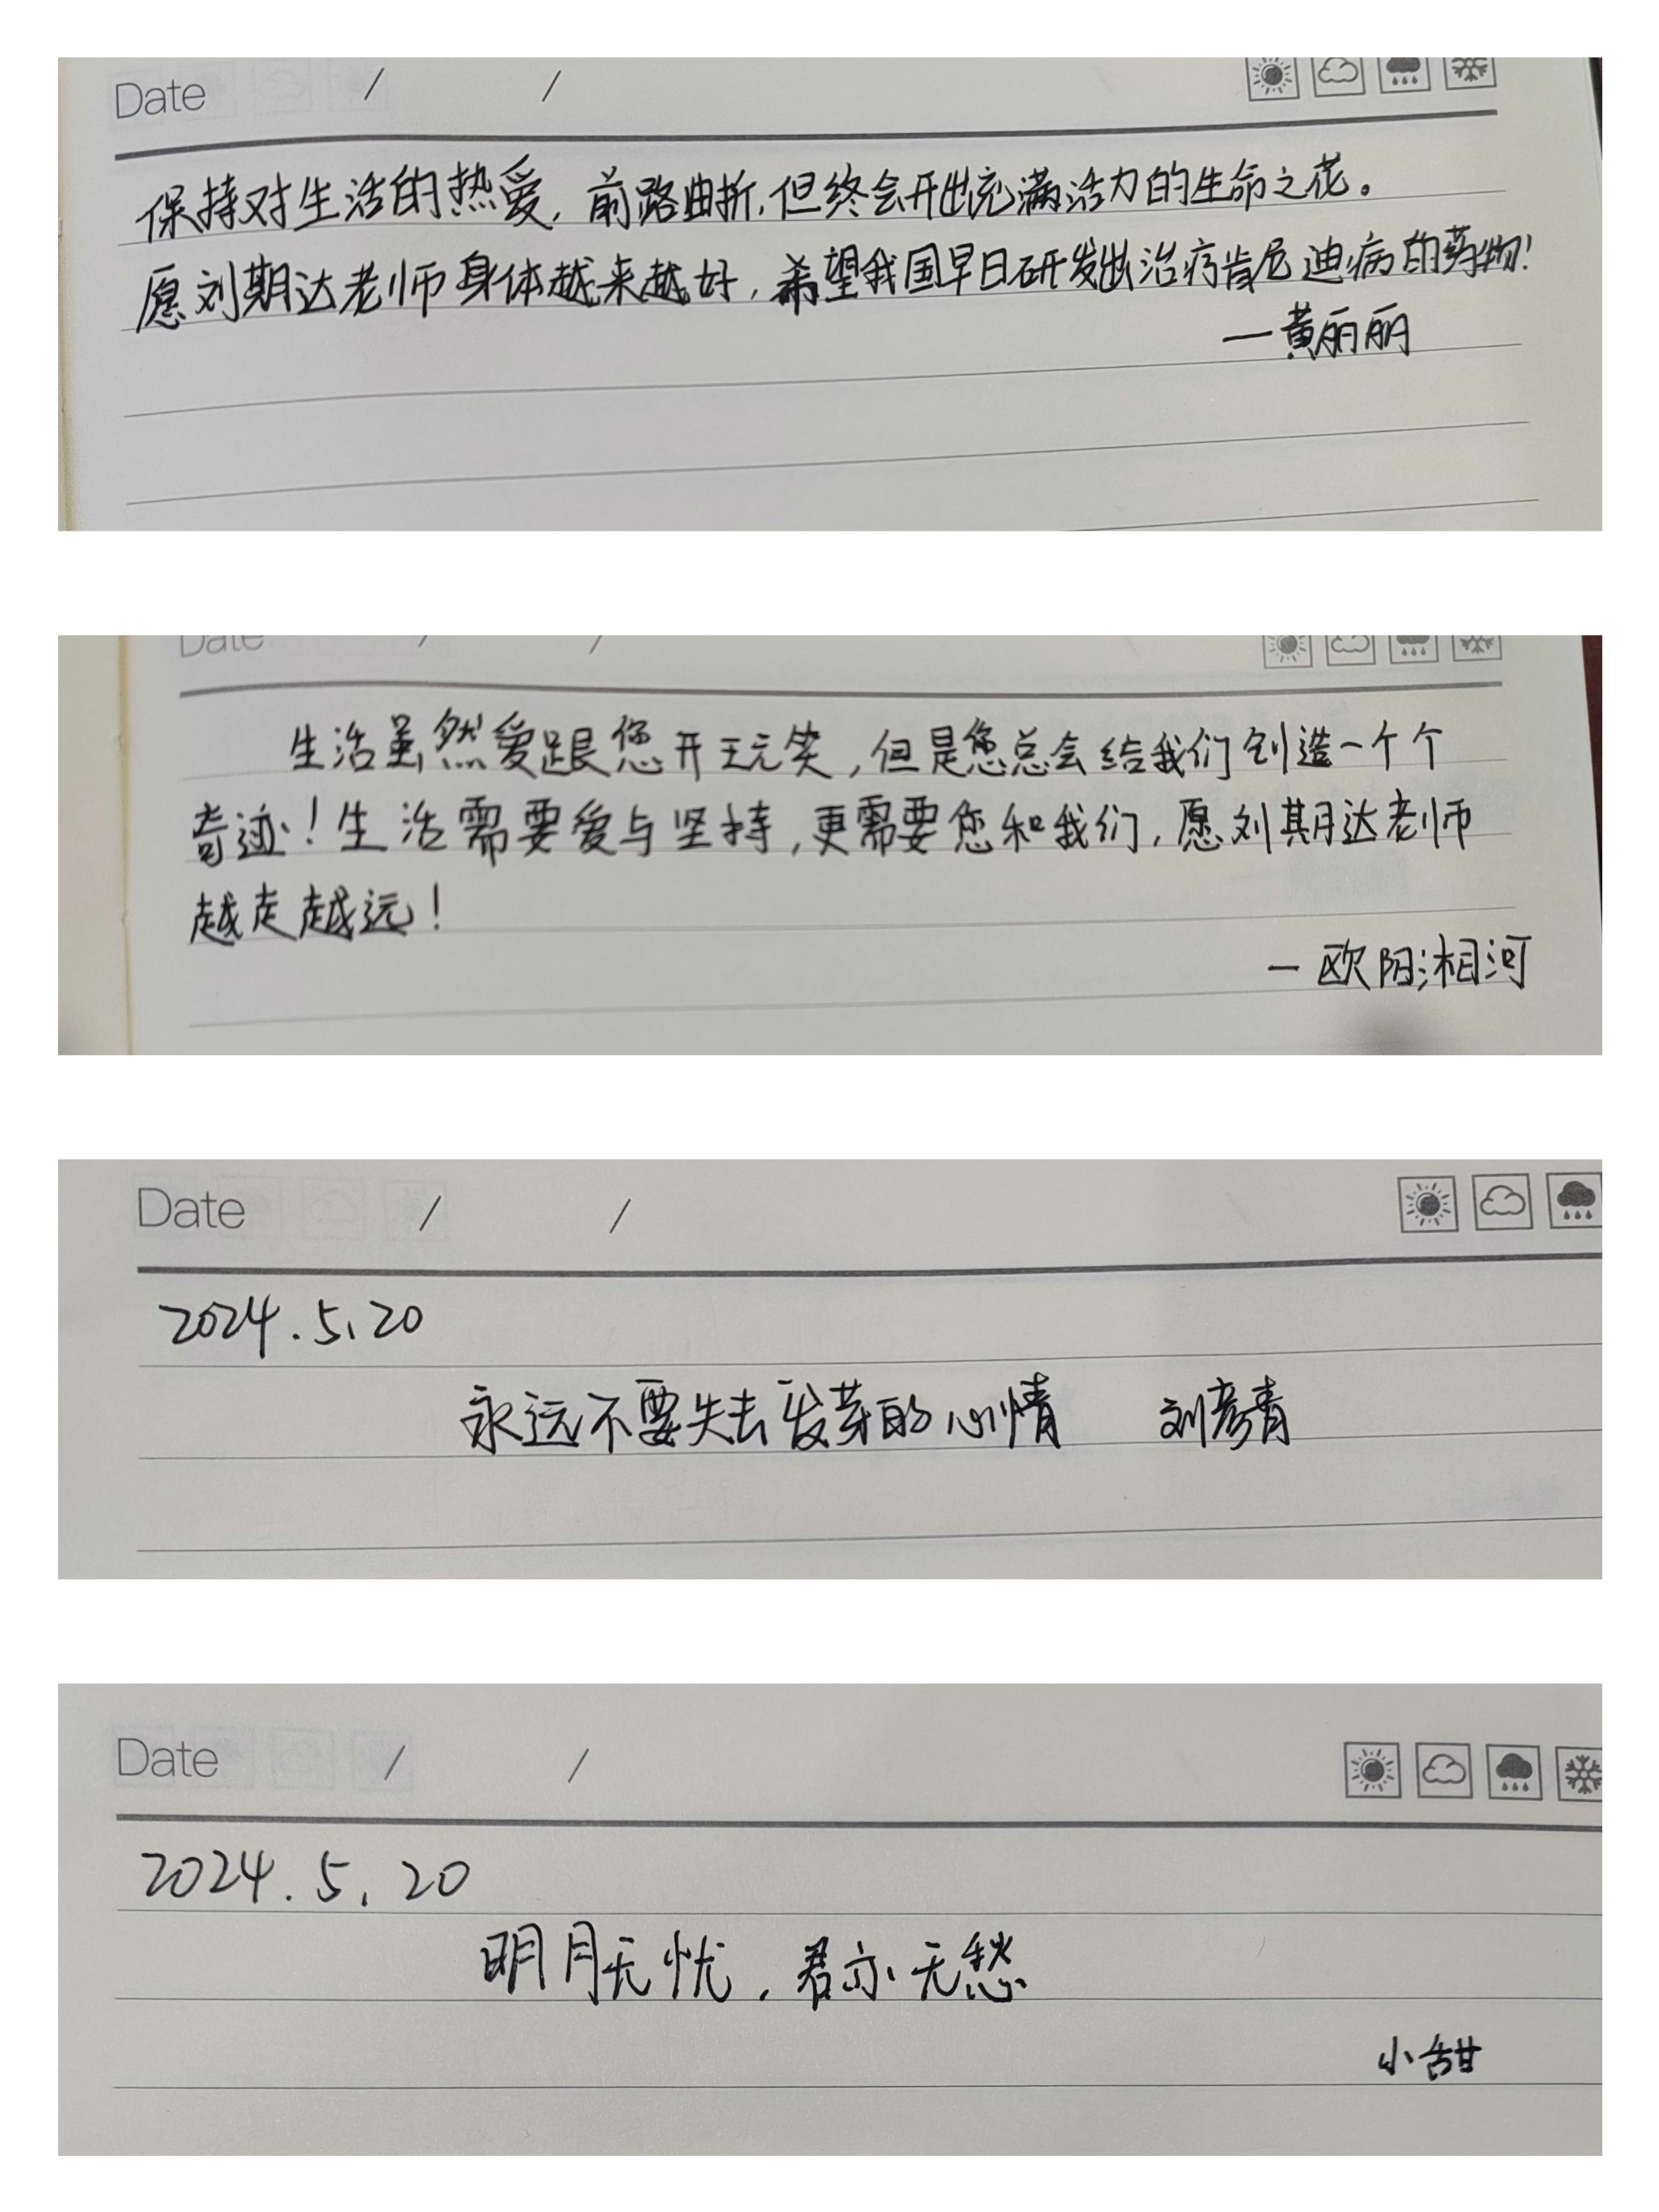 Date / /
保持对生活的热爱，前路曲折，但终会开出充满活力的生命之花。
愿刘期达老师身体越来越好，希望我国早日研发出治疗肯尼迪病的药物！
—黄丽丽
Date / /
生活虽然爱跟您开玩笑，但是您总会给我们创造一个个
奇迹！生活需要爱与坚持，更需要您和我们，愿刘期达老师
越走越远！
—欧阳湘河
Date / /
2024.5.20
永远不要失去发芽的心情 刘彦青
Date / /
2024.5.20
明月无忧，君亦无愁
小甜